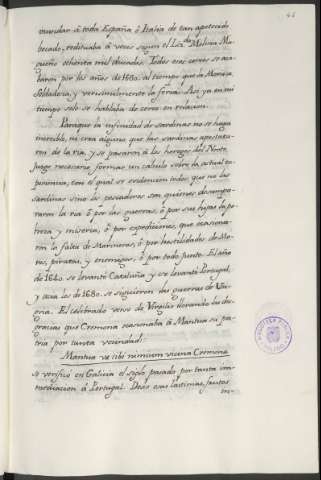 inundar á toda España, é Italia de tan apetecido
bocado, redituaba á veces segun el Liz.do Molina Ma-
queño ochenta mil ducados. Todos esos cercos se aca-
baron por los años de 1680. al tiempo que la Marina
Soldadera, y verisimilmente la feria. Así ya en mi
tiempo solo se hablaba de cercos en relacion.
Para que la infinidad de sardinas no se haga
increible, ni crea alguno que las sardinas apostata-
ron de la ria, y se pasaron á los hereges del Norte,
juzgo necesario formar un calculo sobre la actual ex-
periencia, con el qual se evidencien todos, que no las
sardinas sino los pescadores son quienes desampa-
raron la ria ó por las guerras, ó por sus hijas la po-
breza y miseria, ó por expediciones, que ocasiona-
ron la falta de Marineros, ó por hostilidades de Mo-
ros, piratas, y enemigos, ó por todo junto. El año
de 1640. se levantó Cataluña y se levantó Portugal,
y acia los de 1680. se siguieron las guerras de
El celebrado verso de Virgilio llorando las des-
gracias que Cremona ocasionaba á Mantua su pa-
tria por tanta vecindad:
Mantua væ tibi nimium vicina Cremona
se verificó en Galicia el siglo pasado por tanta in-
mediacion á Portugal. De esas lastimas, faltas
in-